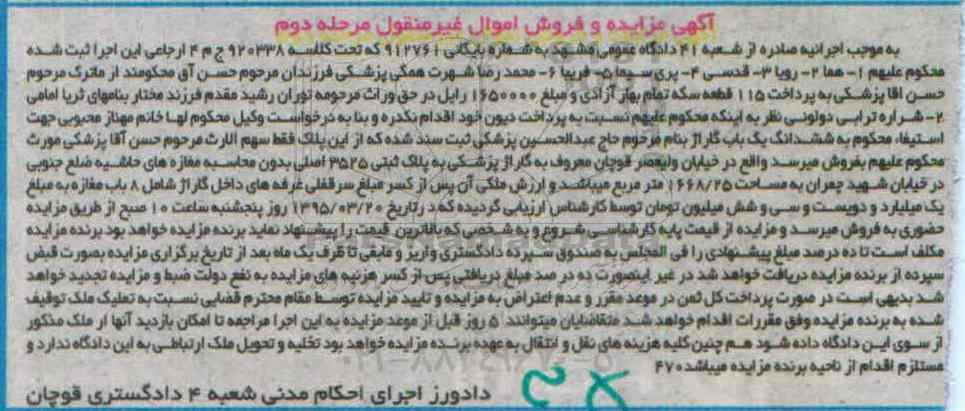 آگهی مزایده و فروش اموال غیرمنقول مرحله دوم
به موجب اجرائیه صادره از شعبه ۴۱ دادگاه عمومی مشهد به شماره بایگانی ۹۱۲۷۶۱ که تحت کلاسه ۹۲۰۳۳۸ ج م ۴ ارجاعی این اجرا ثبت شده
محکوم علیهم ۱- هما ۲- رویا ۳- قدسی ۴- پری سیما ۵- فریبا ۶- محمد رضا شهرت همگی پزشکی فرزندان مرحوم حسن آق محکومند از ماترک مرحوم
حسن اقا پزشکی به پرداخت ۱۱۵ قطعه سکه تمام بهار آزادی و مبلغ ۱۶۵۰۰۰۰ رایل در حق وراث مرحومه توران رشید مقدم فرزند مختار بنامهای ثریا امامی
۲- شراره ترابی دولوئی نظر به اینکه محکوم علیهم نسبت به پرداخت دیون خود اقدام نکرده و بنا به درخواست وکیل محکوم لها خانم مهناز محبوبی جهت
استیفاء محکوم به ششدانگ یک باب گاراژ بنام مرحوم حاج عبدالحسین پزشکی ثبت سند شده که از این پلاک فقط سهم الارث مرحوم حسن آقا پزشکی مورث
محکوم علیهم بفروش میرسد واقع در خیابان ولیعصر قوچان معروف به گاراژ پزشکی به پلاک ثبتی ۳۵۲۵ اصلی بدون محاسبه مغازه های حاشیه ضلع جنوبی
در خیابان شهید چمران به مساحت ۱۶۶۸/۲۵ متر مربع میباشد و ارزش ملکی آن پس از کسر مبلغ سرقفلی غرفه های داخل گاراژ شامل ۸ باب مغازه به مبلغ
یک میلیارد و دویست و سی و شش میلیون تومان توسط کارشناس ارزیابی گردیده که در تاریخ ۱۳۹۵/۰۳/۲۰ روز پنجشنبه ساعت ۱۰ صبح از طریق مزایده
حضوری به فروش میرسد و مزایده از قیمت پایه کارشناسی شروع و به شخصی که بالاترین قیمت را پیشنهاد نماید برنده مزایده خواهد بود برنده مزایده
مکلف است تا ده درصد مبلغ پیشنهادی را فی المجلس به صندوق سپرده دادگستری واریز و مابقی تا ظرف یک ماه بعد از تاریخ برگزاری مزایده بصورت قبض
سپرده از برنده مزایده دریافت خواهد شد در غیر اینصورت ده در صد مبلغ دریافتی پس از کسر هزنیه های مزایده به نفع دولت ضبط و مزایده تجدید خواهد
شد بدیهی است در صورت پرداخت کل ثمن در موعد مقرر و عدم اعتراض به مزایده و تایید مزایده توسط مقام محترم قضایی نسبت به تملیک ملک توقیف
شده به برنده مزایده وفق مقررات اقدام خواهد شد متقاضایان میتوانند ۵ روز قبل از موعد مزایده به این اجرا مراجعه تا امکان بازدید آنها از ملک مذکور
از سوی این دادگاه داده شود هم چنین کلیه هزینه های نقل و انتقال به عهده برنده مزایده خواهد بود تخلیه و تحویل ملک ارتباطی به این دادگاه ندارد و
مستلزم اقدام از ناحیه برنده مزایده میباشد ۴۷۰
دادورز اجرای احکام مدنی شعبه ۴ دادگستری قوچان